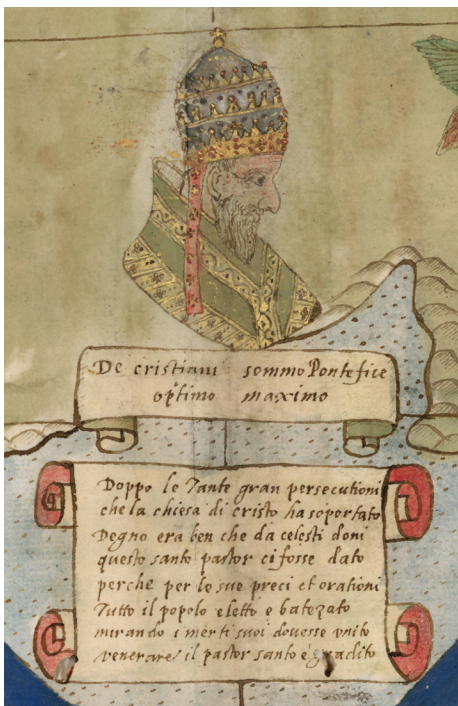 De cristiani sommo Pontefice
optimo maximo
Doppo le Tante gran persecutioni
che la chiesa di cristo ha soportato
Degno era ben che da celesti doni
questo santo pastor ci fosse dato
perche per le sue preci et orationi
Tutto il popolo eletto e batezato
mirando i merti suoi dovesse unito
venerare il pastor santo e gradito